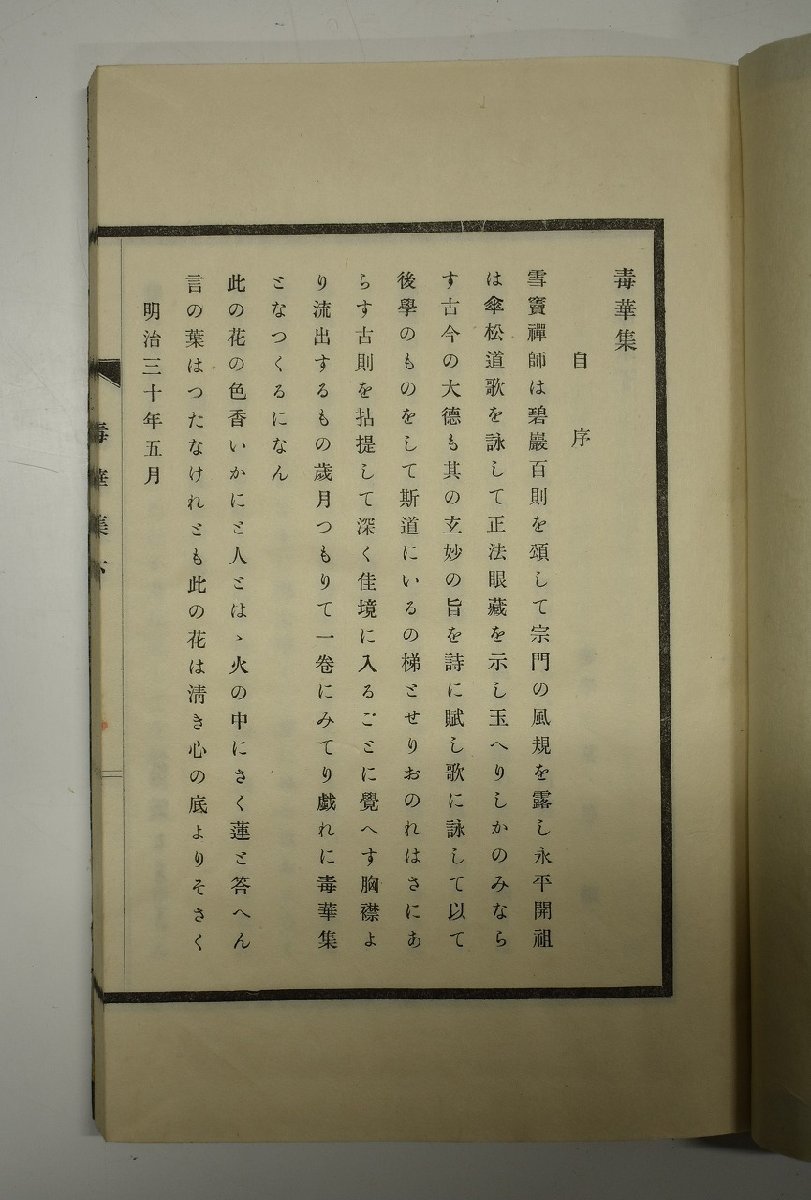 毒華集
自序
雪竇禪師は碧巖百則を頌して宗門の風規を露し永平開祖
は傘松道歌を詠して正法眼藏を示し玉へりしかのみなら
す古今の大德も其の玄妙の旨を詩に賦し歌に詠して以て
後學のものをして斯道にいるの梯とせりおのれはさにあ
らす古則を拈提して深く佳境に入るごとに覺へす胸襟よ
り流出するもの歲月つもりて一卷にみてり戯れに毒華集
となつくるになん
此の花の色香いかにと人とはゝ火の中にさく蓮と答へん
言の葉はつたなけれとも此の花は清き心の底よりそさく
明治三十年五月
毒華集